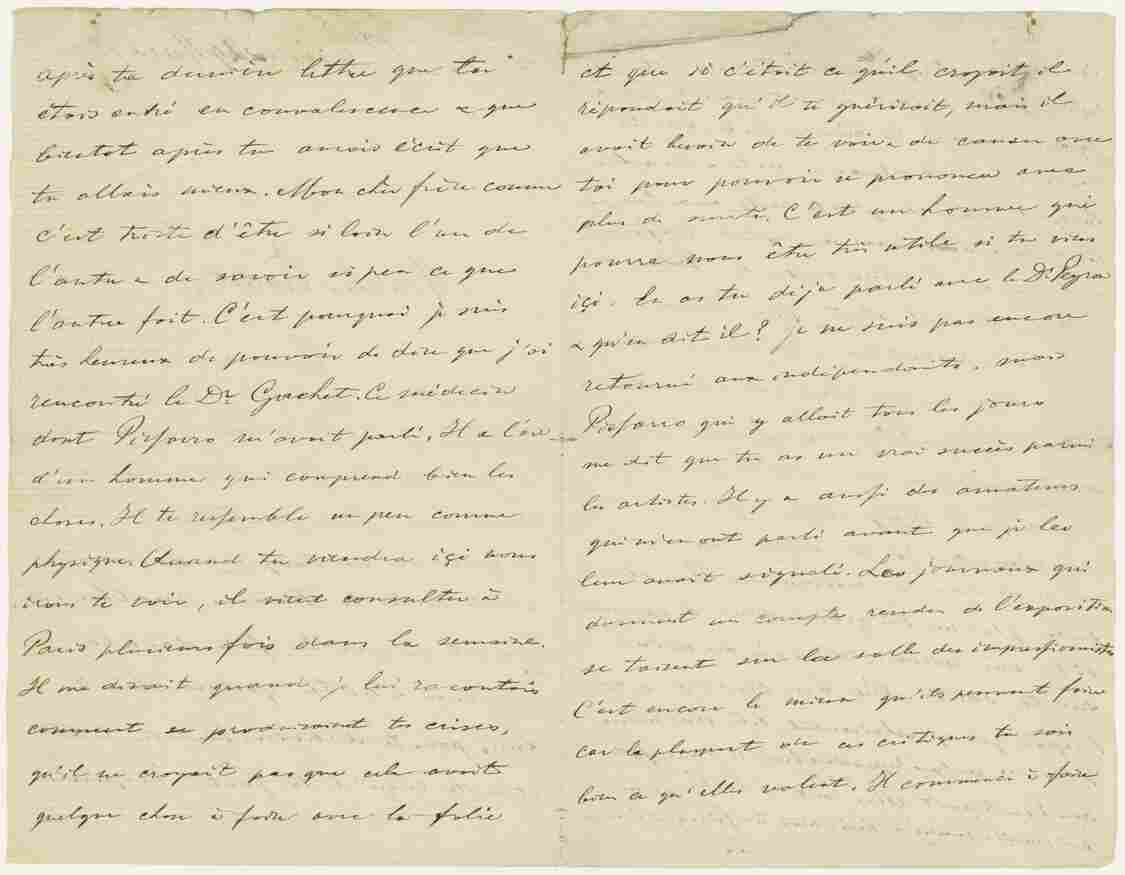 après ta dernière lettre que toi
étais entré en convalescence & que
bientot après tu aurais écrit que
tu allais mieux. Mon cher frère comme
c'est triste d'être si loin l'un de
l'autre & de savoir si peu ce que
l'autre fait. C'est pourquoi je suis
très heureux de pouvoir de dire que j'ai
rencontré le Dr Gachet. Ce médecin
dont Pissarro m'avait parlé. Il a l'air
d'un homme qui comprend bien les
choses. Il te ressemble un peu comme
physique. Quand tu viendra içi nous
irons te voir, il vient consulter à
Paris plusieurs fois dans la semaine.
Il me disait quand je lui racontais
comment se produisaient tes crises,
qu'il ne croyait pas que cela avait
quelque chose à faire avec la folie
et que si c'était ce qu'il croyait il
répondait qu'il te guérirait, mais il
avait besoin de te voir & de causer avec
toi pour pouvoir se prononcer avec
plus de sureté. C'est un homme qui
pourra nous être très utile si tu viens
içi. En as tu déja parlé avec le Dr Peyron
& qu'en dit il? je ne suis pas encore
retourné aux indépendants, mais
Pissarro qui y allait tous les jours
me dit que tu as un vrai succès parmi
les artistes. Il y a aussi des amateurs
qui m'en ont parlé avant que je les
leur avait signalé. Les journaux qui
donnent un compte rendu de l'exposition
se taisent sur la salle des impressionnistes
C'est encore le mieux qu'ils peuvent faire
car la plupart de ces critiques tu sais
bien ce qu'elles valent. Il commence à faire